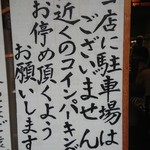 当店に駐車場は
ございません
近くのコインパーキング
お停め頂くよう
お願いします